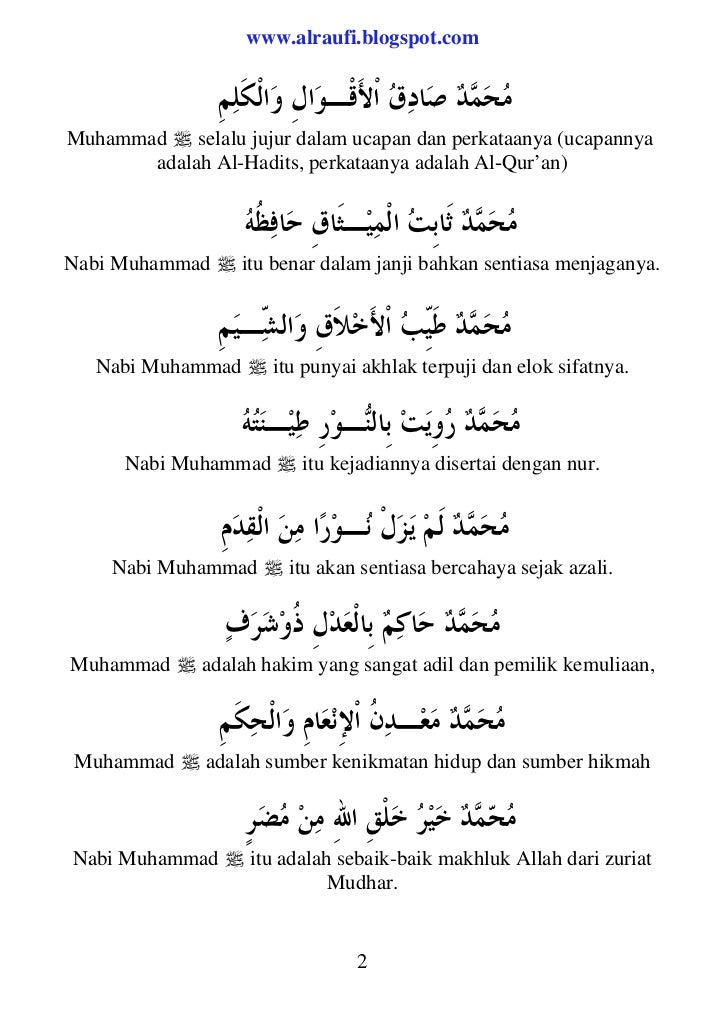 www.alraufi.blogspot.com
مُحَمَّدٌ صَادِقُ اْلأَقْـــوَالِ وَالْكَلِمِ
Muhammad ﷺ selalu jujur dalam ucapan dan perkataanya (ucapannya
adalah Al-Hadits, perkataanya adalah Al-Qur’an)
مُحَمَّدٌ ثَابِتُ الْمِيْـــثَاقِ حَافِظُهُ
Nabi Muhammad ﷺ itu benar dalam janji bahkan sentiasa menjaganya.
مُحَمَّدٌ طَيِّبُ اْلأَخْلاَقِ وَالشِّـــيَمِ
Nabi Muhammad ﷺ itu punyai akhlak terpuji dan elok sifatnya.
مُحَمَّدٌ رُوِيَتْ بِالنُّـــوْرِ طِيْـــنَتُهُ
Nabi Muhammad ﷺ itu kejadiannya disertai dengan nur.
مُحَمَّدٌ لَمْ يَزَلْ نُـــوْرًا مِنَ الْقِدَمِ
Nabi Muhammad ﷺ itu akan sentiasa bercahaya sejak azali.
مُحَمَّدٌ حَاكِمٌ بِالْعَدْلِ ذُوْشَرَفٍ
Muhammad ﷺ adalah hakim yang sangat adil dan pemilik kemuliaan,
مُحَمَّدٌ مَعْـــدِنُ اْلإِنْعَامِ وَالْحِكَمِ
Muhammad ﷺ adalah sumber kenikmatan hidup dan sumber hikmah
مُحَمَّدٌ خَيْرُ خَلْقِ اللهِ مِنْ مُضَرٍ
Nabi Muhammad ﷺ itu adalah sebaik-baik makhluk Allah dari zuriat
Mudhar.
2